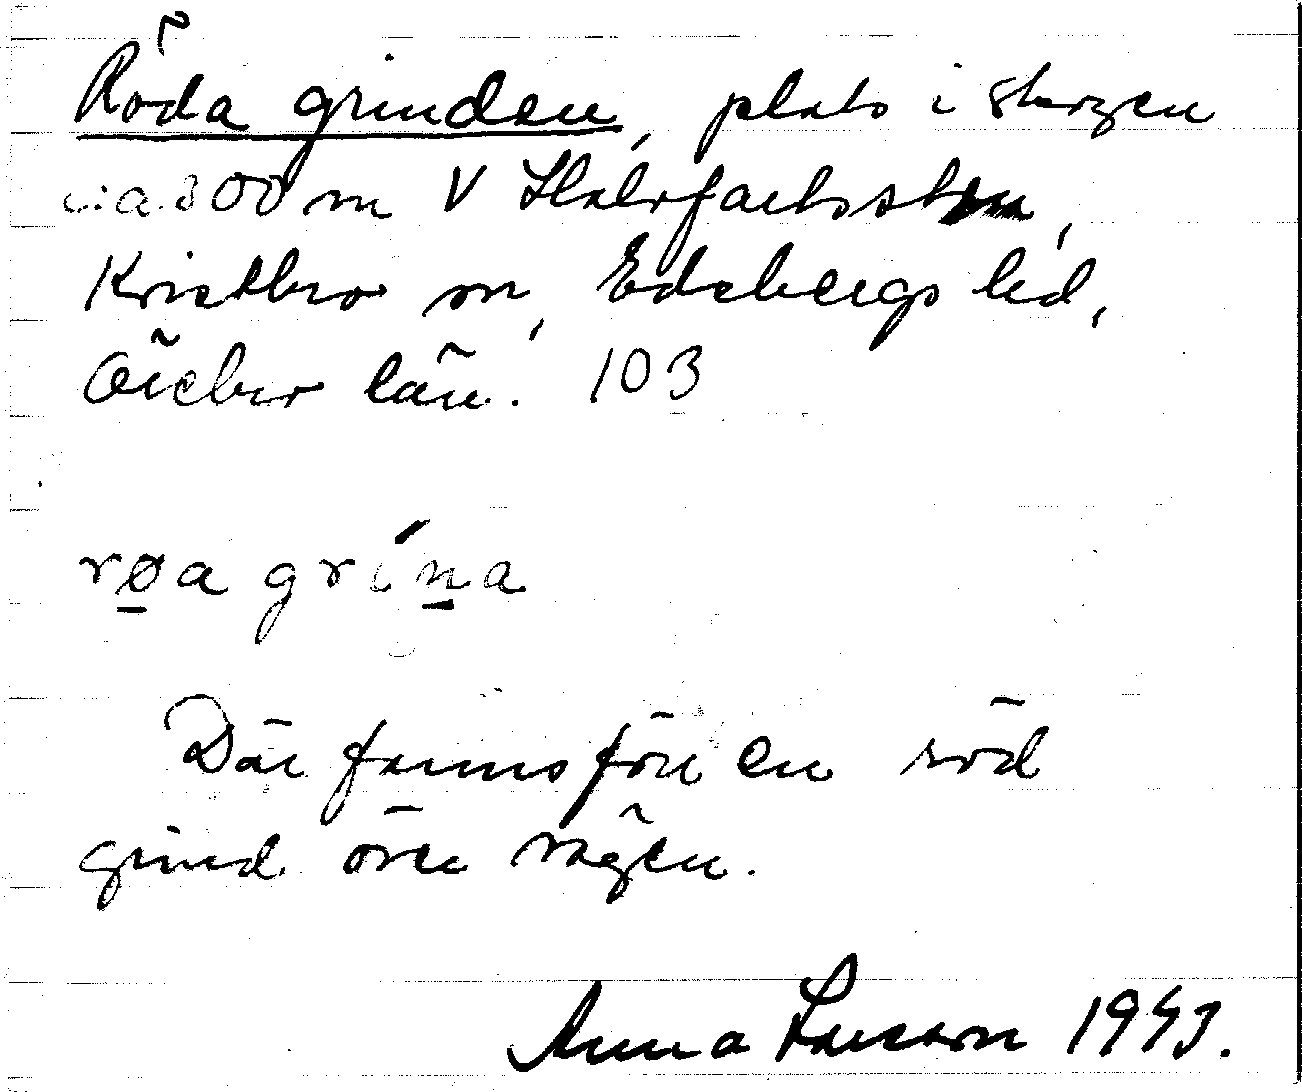 Röda grinden, plats i skogen
c:a 800 m V Halvfartsstenen,
Kvistbro sn, Edsbergs hd,
Örebro län. 103
røa grína
Där fanns förr en röd
grind över vägen.
Anna Larsson 1943.